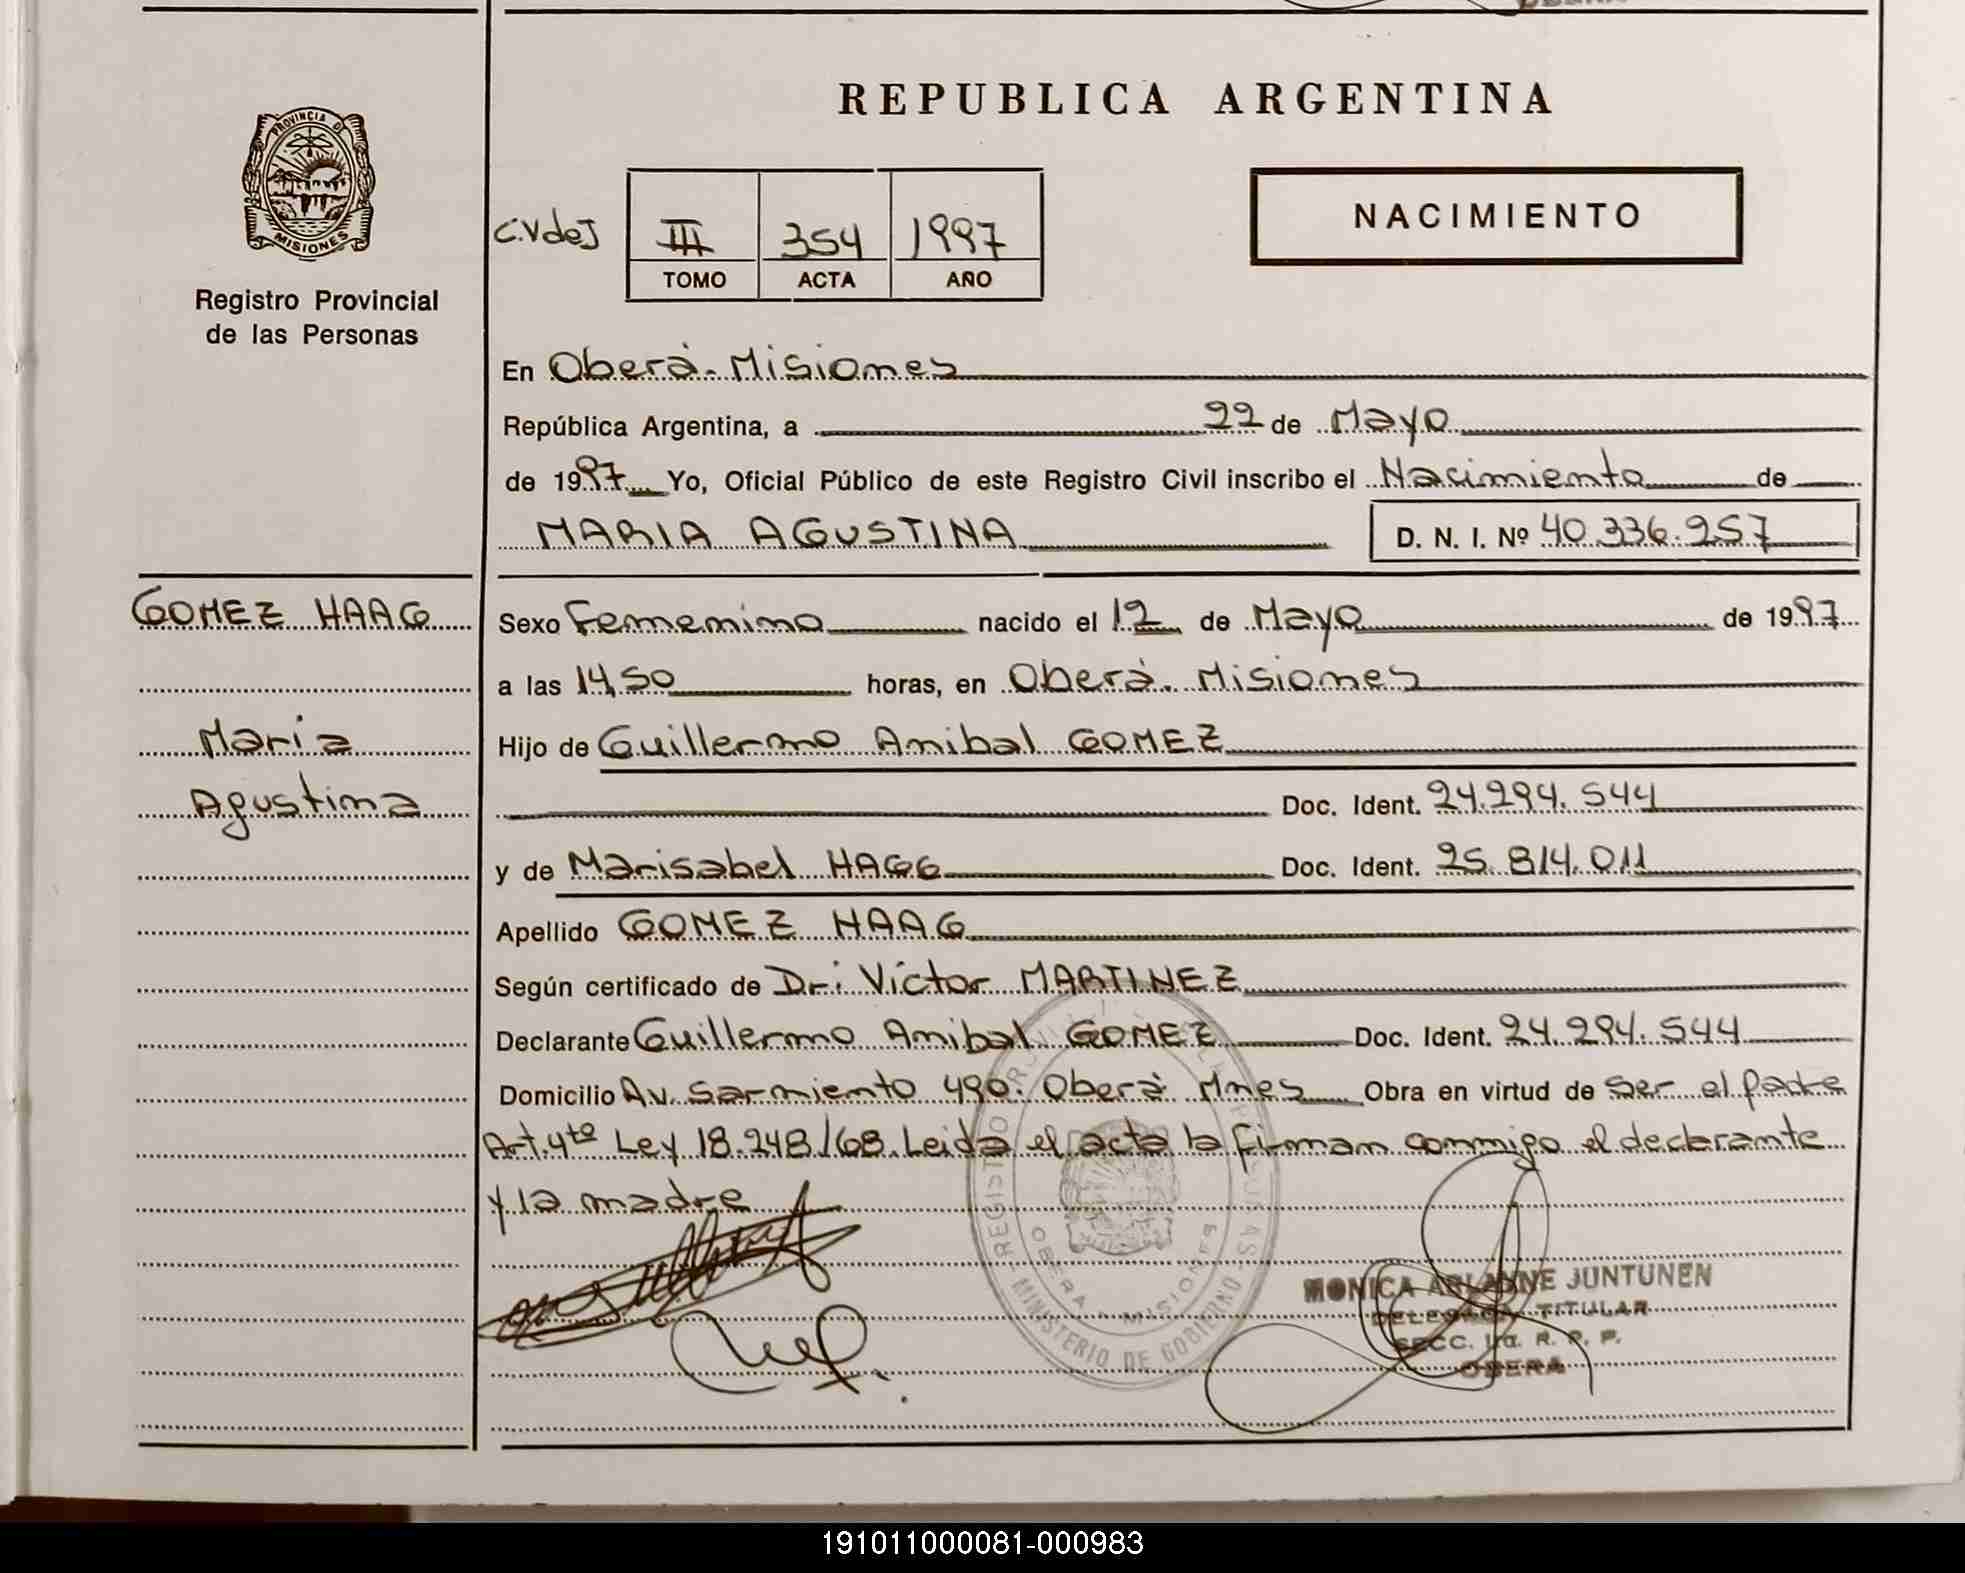 REPUBLICA ARGENTINA
PROVINCIA DE
MISIONES
Registro Provincial
de las Personas
C.VdeJ
III 354 1997
TOMO ACTA AÑO
NACIMIENTO
En Oberá-Misiones
República Argentina, a 22 de Mayo
de 1997 Yo, Oficial Público de este Registro Civil inscribo el Nacimiento de
MARIA AGUSTINA D. N. I. Nº 40.336.257
GOMEZ HAAG
Maria
Agustina
Sexo Femenino nacido el 12 de Mayo de 1997
a las 14,50 horas, en Oberá. Misiones
Hijo de Guillermo Anibal GOMEZ
Doc. Ident. 24.294.544
y de Marisabel HAGG Doc. Ident. 25.814.011
Apellido GOMEZ HAAG
Según certificado de Dr: Víctor MARTINEZ
Declarante Guillermo Anibal GOMEZ Doc. Ident. 24.294.544
Domicilio Av. Sarmiento 490. Oberá Mnes Obra en virtud de Ser el padre
Art.4to Ley 18.248/68. Leida el acta la firman conmigo el declarante
y la madre
REGISTRO
OBERA - MISIONES
MINISTERIO DE GOBIERNO
MONICA ARIANNE JUNTUNEN
DELEGADA TITULAR
SECC. 1a. R. P. P.
OBERA
191011000081-000983